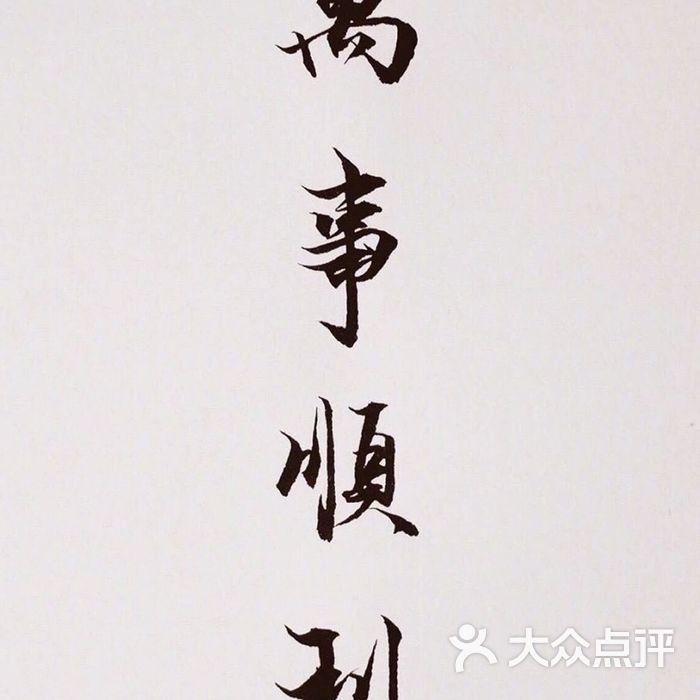 萬事順利
大众点评